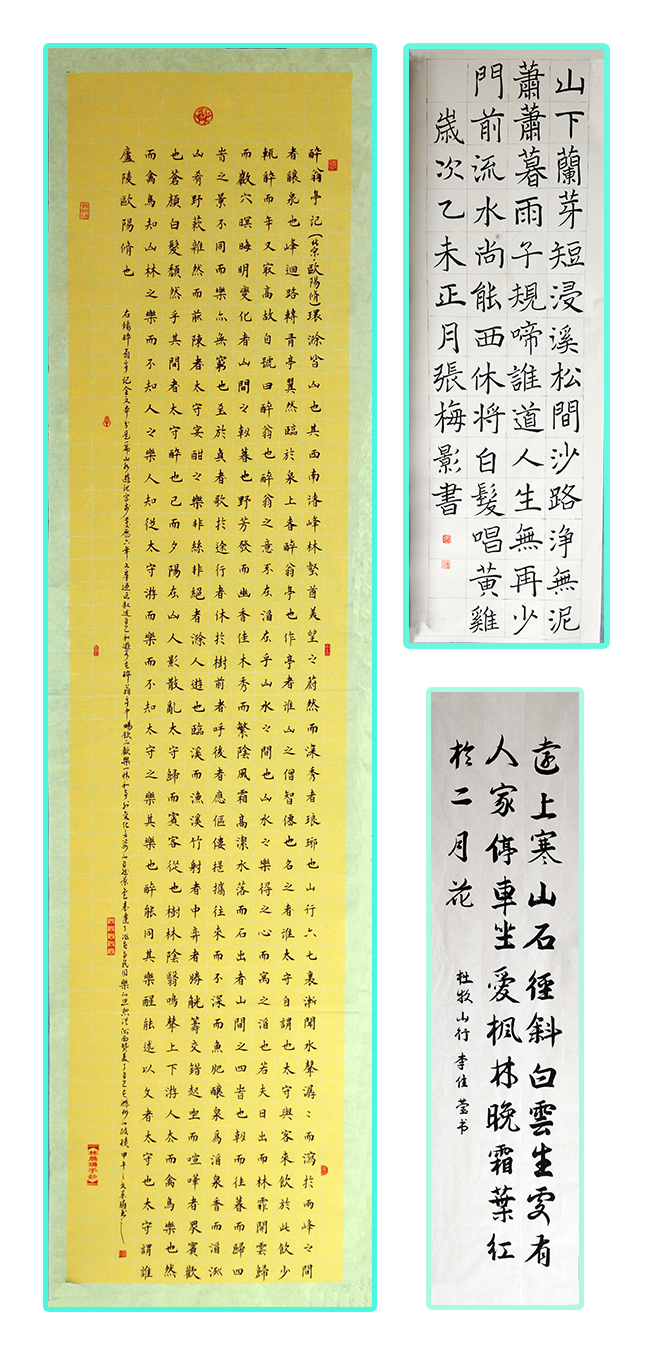 醉翁亭記(北宋·歐陽脩)環滁皆山也其西南諸峰林壑酋美望之蔚然而深秀者琅琊也山行六七裏漸聞水聲潺〻而瀉於兩峰之間
者釀泉也峰迴路轉有亭翼然臨於泉上者醉翁亭也作亭者誰山之僧智僊也名之者誰太守自謂也太守與客來飲於此飲少
輒醉而年又最高故自號曰醉翁也醉翁之意不在酒在乎山水之間也山水之樂得之心而寓之酒也若夫日出而林霏開雲歸
而巖穴暝晦明變化者山間之朝暮也野芳發而幽香佳木秀而繁陰風霜高潔水落而石出者山間之四時也朝而往暮而歸四
時之景不同而樂亦無窮也至於負者歌於途行者休於樹前者呼後者應傴僂提攜往來而不深而魚肥釀泉爲酒泉香而酒洌
山肴野蔌雜然而前陳者太守宴酣之樂非絲非絕者滁人遊也臨溪而漁溪竹射者中弈者勝觥籌交錯起坐而喧嘩者眾賓歡
也蒼顏白髮頹然乎其間者太守醉也已而夕陽在山人影散亂太守歸而賓客從也樹林陰翳鳴聲上下游人去而禽鳥樂也然
而禽鳥知山林之樂而不知人之樂人知從太守游而樂而不知太守之樂其樂也醉能同其樂醒能述以文者太守也太守謂誰
廬陵歐陽脩也
山下蘭芽短浸溪松間沙路净無泥
蕭蕭暮雨子規啼誰道人生無再少
門前流水尚能西休将白髮唱黃雞
歲次乙未正月張梅影書
遠上寒山石徑斜白雲生處有
人家停車坐愛楓林晚霜葉红
於二月花
杜牧山行 李佳莹书